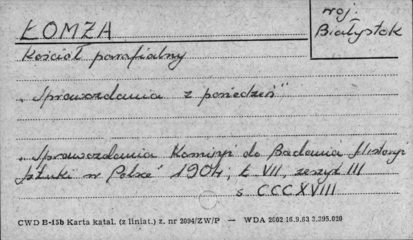 ŁOMŻA
woj.
Białystok
Kościół parafialny
„Sprawozdania z posiedzeń"
„Sprawozdania Komisyi do Badania Historyi
Sztuki w Polsce" 1904, t. VII, zeszyt III
s CCCXVIII
CWD E-15b Karta katal. (z liniat.) z. nr 2094/ZW/P — WDA 2002 16.9.63 3.395.020